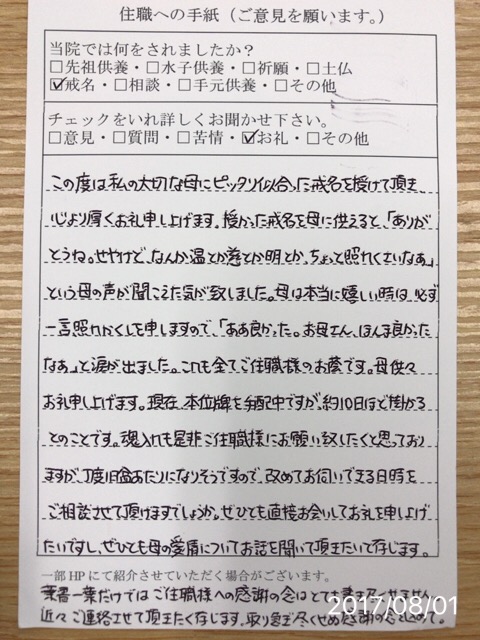 住職への手紙（ご意見を願います。）
当院では何をされましたか？
□先祖供養・□水子供養・□祈願・□土仏
☑戒名・□相談・□手元供養・□その他
チェックをいれ詳しくお聞かせ下さい。
□意見・□質問・□苦情・☑お礼・□その他
この度は私の大切な母にピッタリ似合った戒名を授けて頂き
心より厚くお礼申し上げます。授かった戒名を母に供えると、「ありが
とうね。せやけど、なんか温とか慈とか明とか、ちょっと照れくさいなぁ」
という母の声が聞こえた気が致しました。母は本当に嬉しい時は必ず
一言照れかくしを申しますので、「ああ良かった。お母さん、ほんま良かった
なぁ」と涙が出ました。これも全てご住職様のお蔭です。母供々
お礼申し上げます。現在、本位牌を手配中ですが、約10日ほど掛かる
とのことです。魂入れも是非ご住職様にお願い致したくと思っており
ますが、丁度旧盆あたりになりそうですので、改めてお伺いできる日時を
ご相談させて頂けますでしょうか。ぜひとも直接お会いしてお礼を申し上げ
たいですし、ぜひとも母の愛盾についてお話を聞いて頂きたいと存じます。
一部HPにて紹介させていただく場合がございます。
葉書一葉だけではご住職様への感謝の念はとても書きたくせません
近々ご連絡させて頂きたく存じます。取り急ぎ尽くせぬ感謝の念を込めて。
2017/08/01